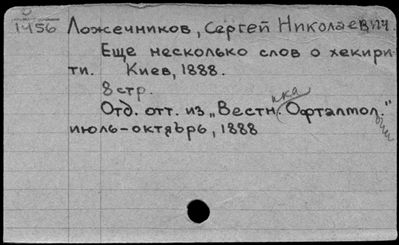 1456 Ложечников, Сергей Николаевич.
Еще несколько слов о хекири-
ти. Киев, 1888.
8 стр.
Отд. отт. из „Вестника Офталмол."
июль-октябрь, 1888